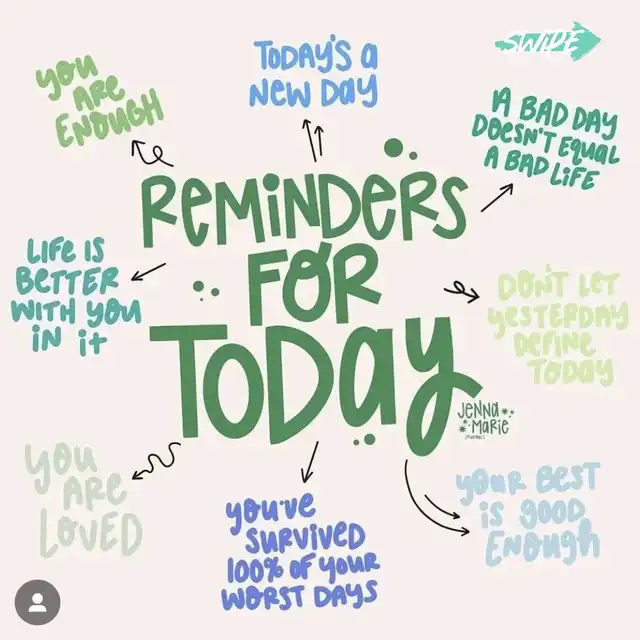 SWIPE
YOU
ARE
ENOUGH
TODAY'S A
NEW DAY
A BAD DAY
DOESN'T EQUAL
A BAD LIFE
REMINDERS
FOR
TODAY
LIFE IS
BETTER
WITH YOU
IN it
DON'T LET
YESTERDAY
DEFINE
TODAY
JENNA
MARIE
YOU
ARE
LOVED
YOU'VE
SURVIVED
100% OF YOUR
WORST DAYS
YOUR BEST
is GOOD
ENOUGH